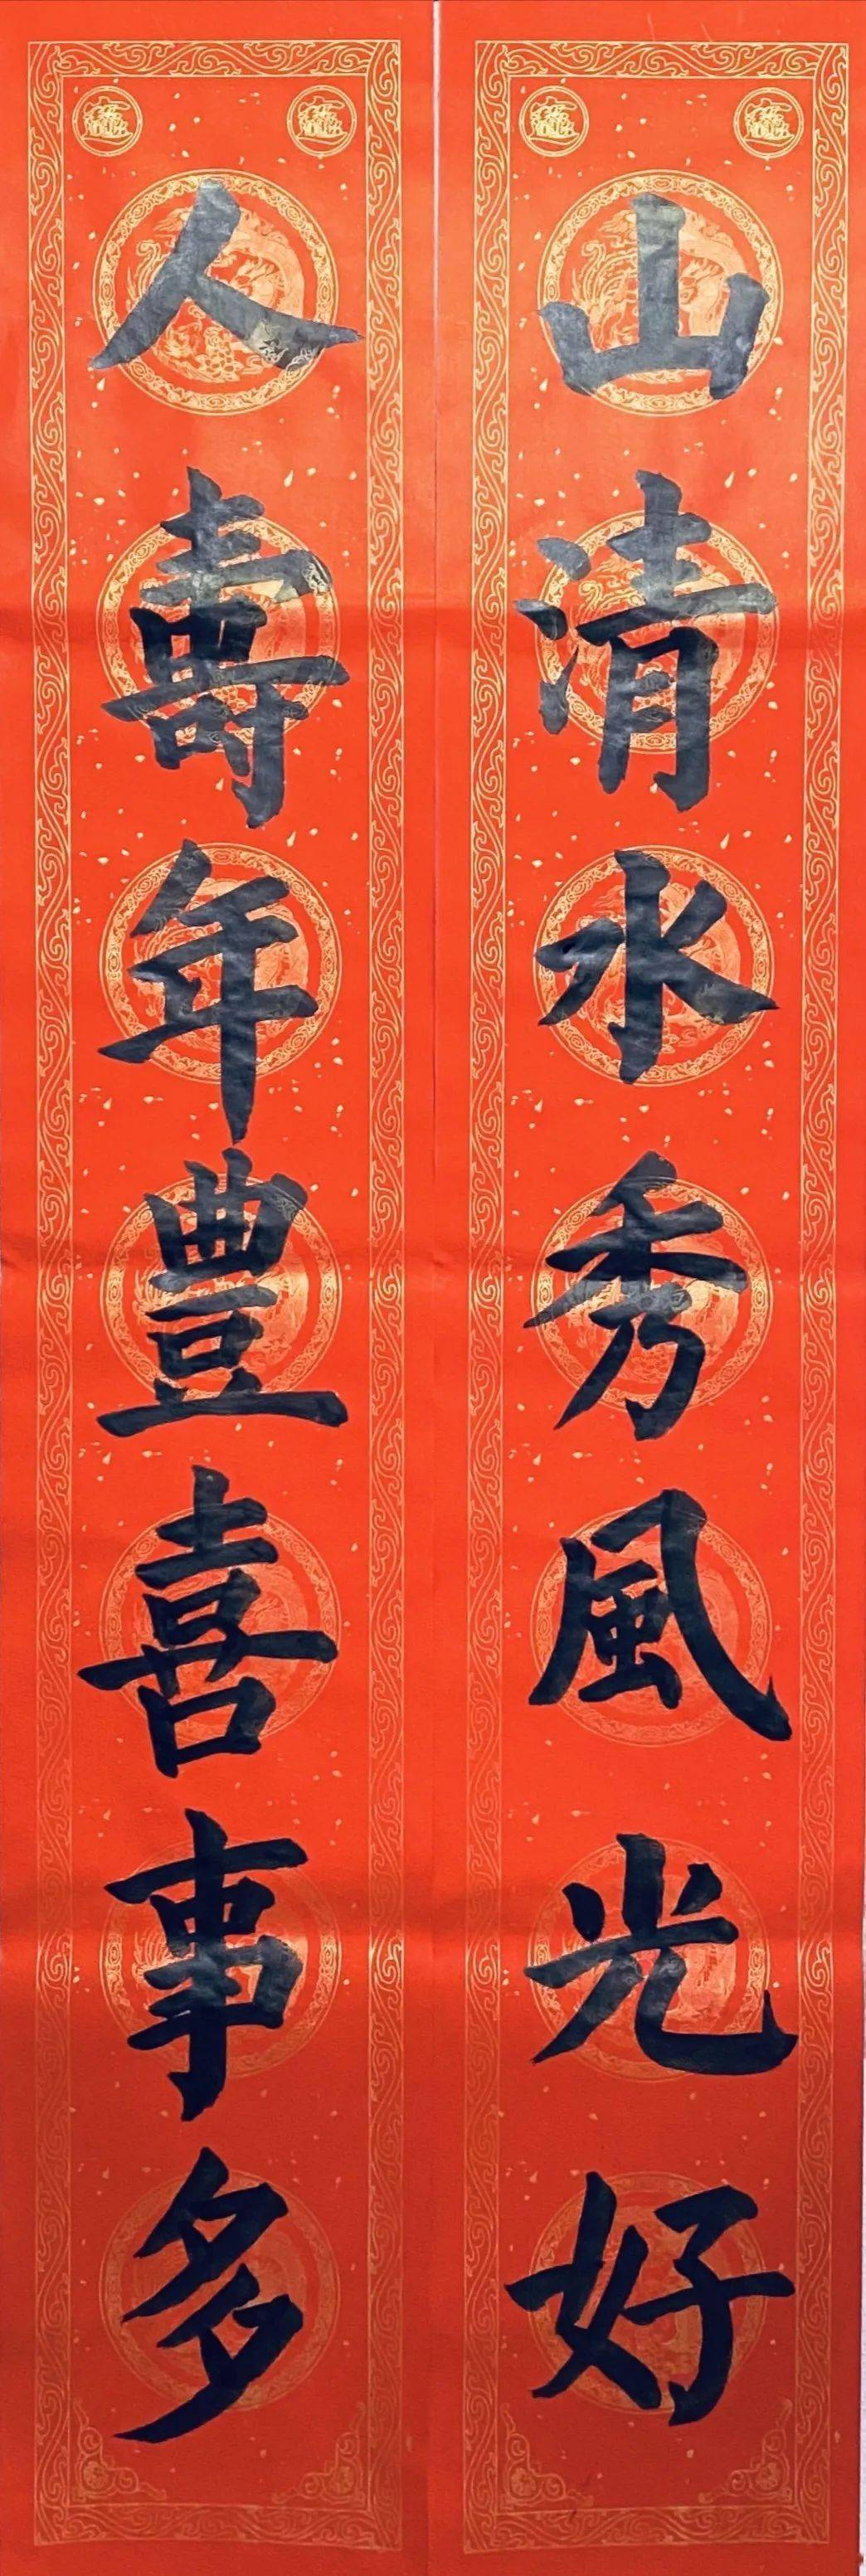 山清水秀風光好
人壽年豊喜事多